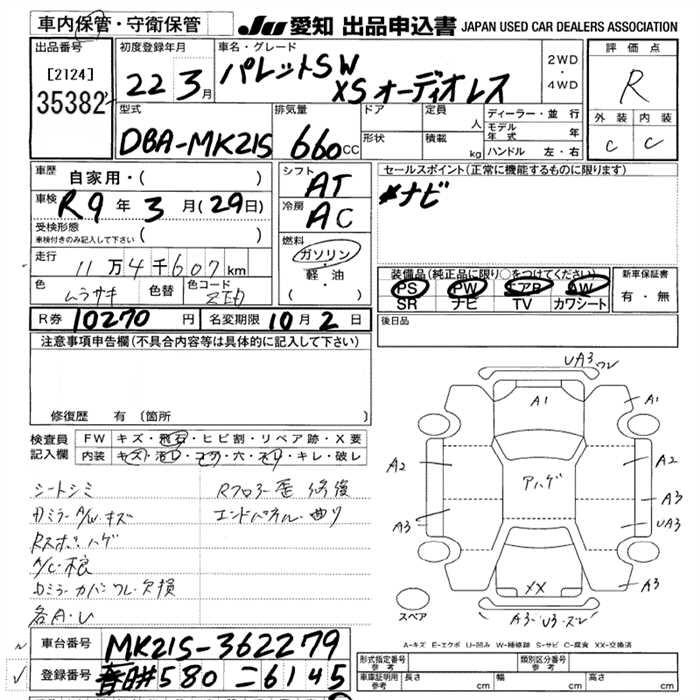 車内保管・守衛保管
JU 愛知 出品申込書 JAPAN USED CAR DEALERS ASSOCIATION
出品番号
[2124]
35382
初度登録年月
22 3月
車名・グレード
パレットSW
XSオーディオレス
2WD
・
4WD
評価点
R
外装 内装
C C
型式
DBA-MK21S
排気量
660cc
ドア
形状
定員
人
積載
kg
ディーラー・並行
モデル年式 年
ハンドル 左・右
車歴
自家用・( )
車検
R9年3月(29日)
受検形態
車検付きのみ記入して下さい
( )
走行
11万4千607km
色
ムラサキ
色替
色コード
シフト
AT
冷房
AC
燃料
ガソリン
・
軽油
( )
セールスポイント(正常に機能するものに限ります)
ナビ
装備品(純正品に限り○をつけてください)
PS PW エアB AW
SR ナビ TV カワシート
新車保証書
有・無
後日品
R券 10270円
名変期限 10月2日
注意事項申告欄(不具合内容等は具体的に記入して下さい)
修復歴 有 〔箇所
検査員
記入欄
FW キズ・飛石・ヒビ割・リペア跡・X要
内装 キズ・汚レ・コゲ・穴・スレ・キレ・破レ
シートシミ
Rフロアー歪 修復
エンドパネル・曲リ
A/C・根
各A・U
UA3 ワレ
A1
A1
A2
A2
アハゲ
A3
A3
UA3
XX
A3
A3・U3・ズレ
スペア
A-キズ E-エクボ U-凹み W-補修跡 S-サビ C-腐食 XX-交換済
車台番号
MK21S-362279
登録番号
春日井580 ニ6145
形式指定番号
参考
類別区分番号
参考
車庫証明用
参考
長さ cm
幅 cm
高さ cm